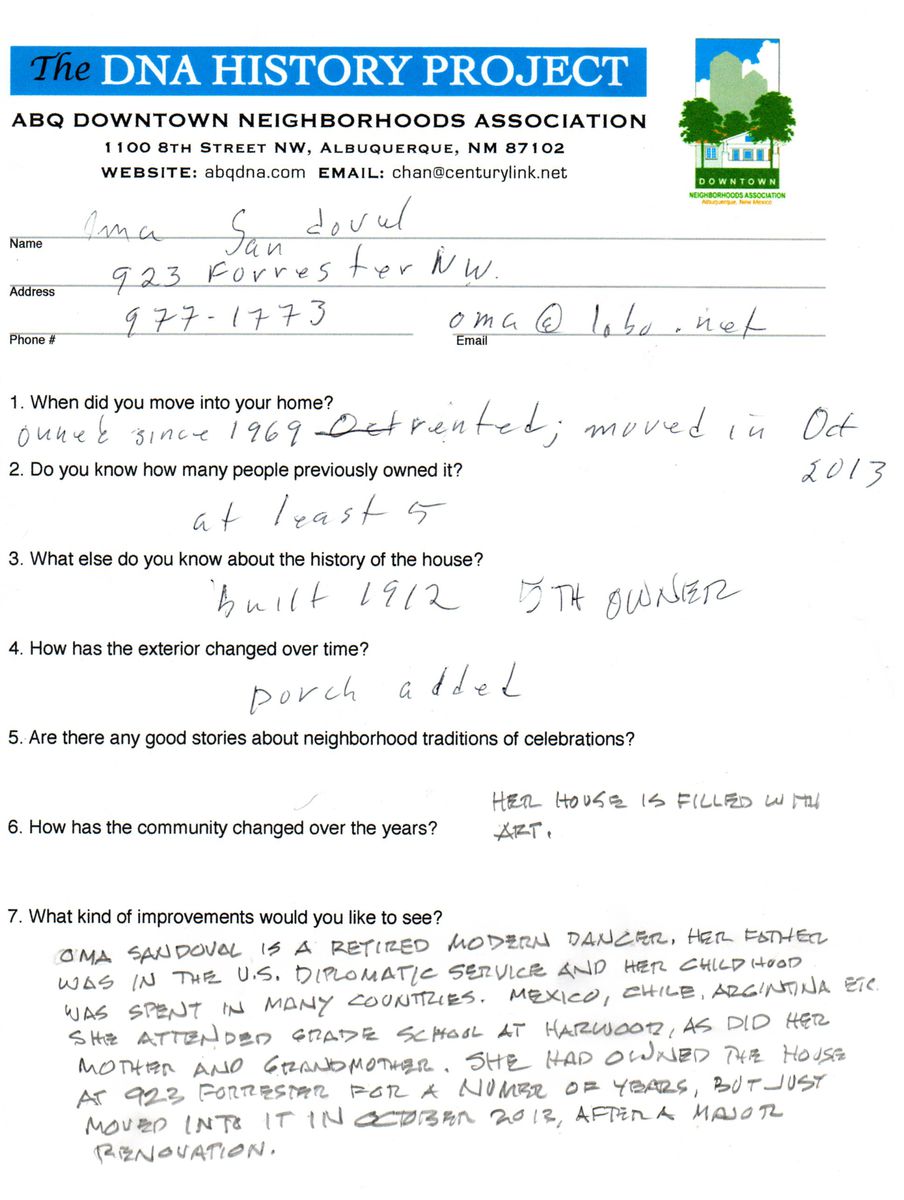 The DNA HISTORY PROJECT
ABQ DOWNTOWN NEIGHBORHOODS ASSOCIATION
1100 8TH STREET NW, ALBUQUERQUE, NM 87102
WEBSITE: abqdna.com EMAIL: chan@centurylink.net
DOWNTOWN
NEIGHBORHOODS ASSOCIATION
Albuquerque, New Mexico
Oma Sandoval
Name
923 Forrester NW.
Address
977-1773 oma@lobo.net
Phone # Email
1. When did you move into your home?
owned since 1969 Oct rented; moved in Oct
2013
2. Do you know how many people previously owned it?
at least 5
3. What else do you know about the history of the house?
built 1912 5TH OWNER
4. How has the exterior changed over time?
porch added
5. Are there any good stories about neighborhood traditions of celebrations?
HER HOUSE IS FILLED WITH
6. How has the community changed over the years? ART.
7. What kind of improvements would you like to see?
OMA SANDOVAL IS A RETIRED MODERN DANCER. HER FATHER
WAS IN THE U.S. DIPLOMATIC SERVICE AND HER CHILDHOOD
WAS SPENT IN MANY COUNTRIES. MEXICO, CHILE, ARGINTINA ETC.
SHE ATTENDED GRADE SCHOOL AT HARWOOD, AS DID HER
MOTHER AND GRANDMOTHER. SHE HAD OWNED THE HOUSE
AT 923 FORRESTER FOR A NUMBER OF YEARS, BUT JUST
MOVED INTO IT IN OCTOBER 2013, AFTER A MAJOR
RENOVATION.